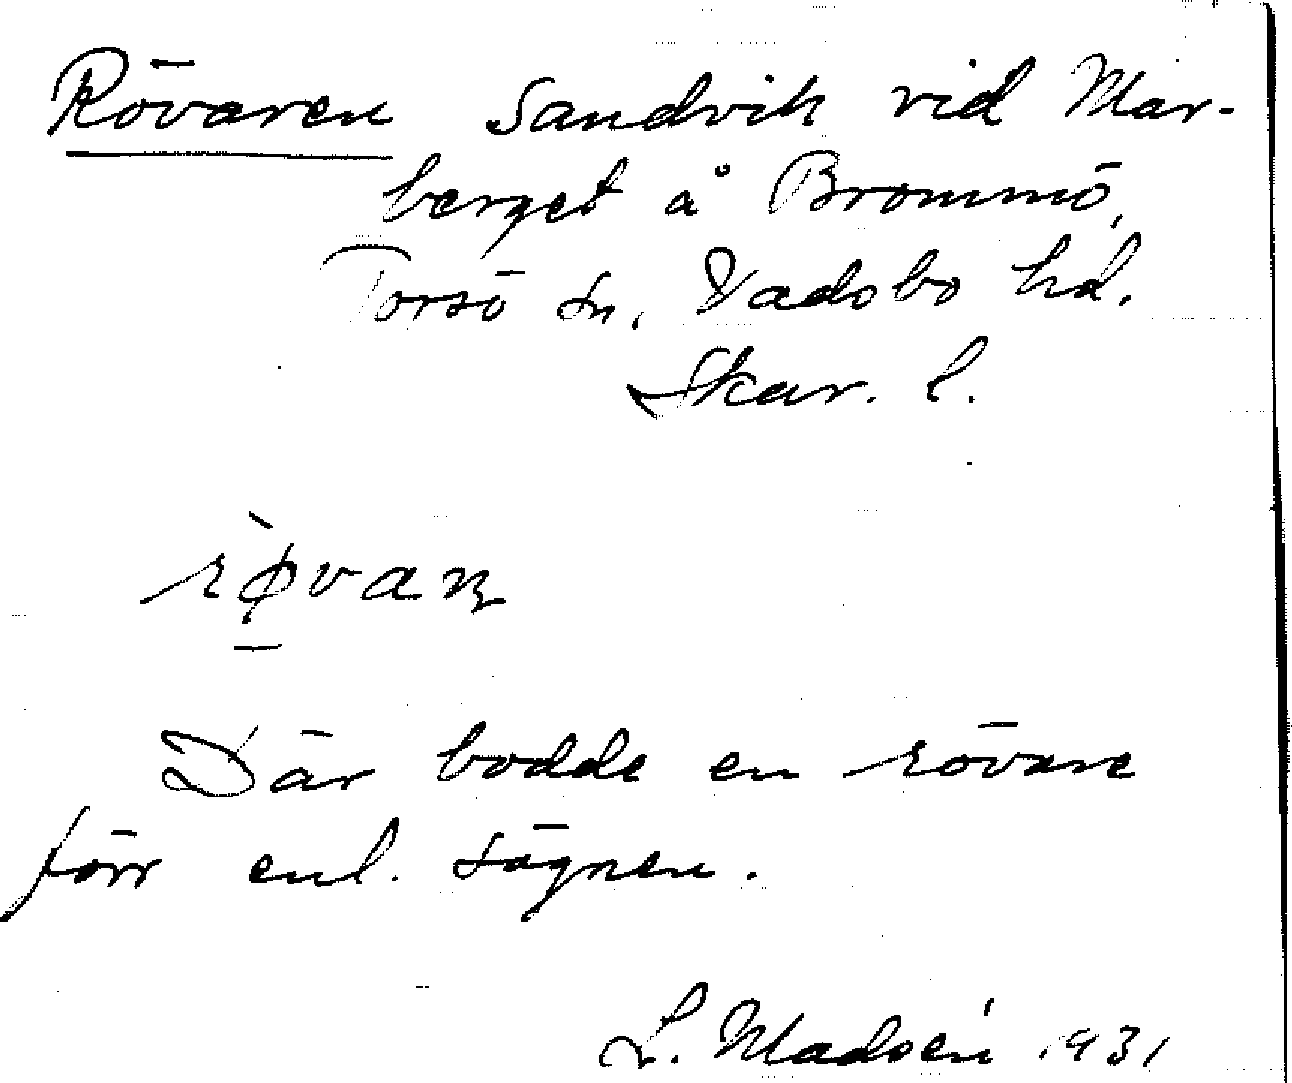 Rövaren sandvik vid Mar-
berget å Brommö,
Torsö sn, Vadsbo hd.
Skar. l.
rø̀van
Där bodde en rövare
förr enl. sägnen.
L. Madsén 1931